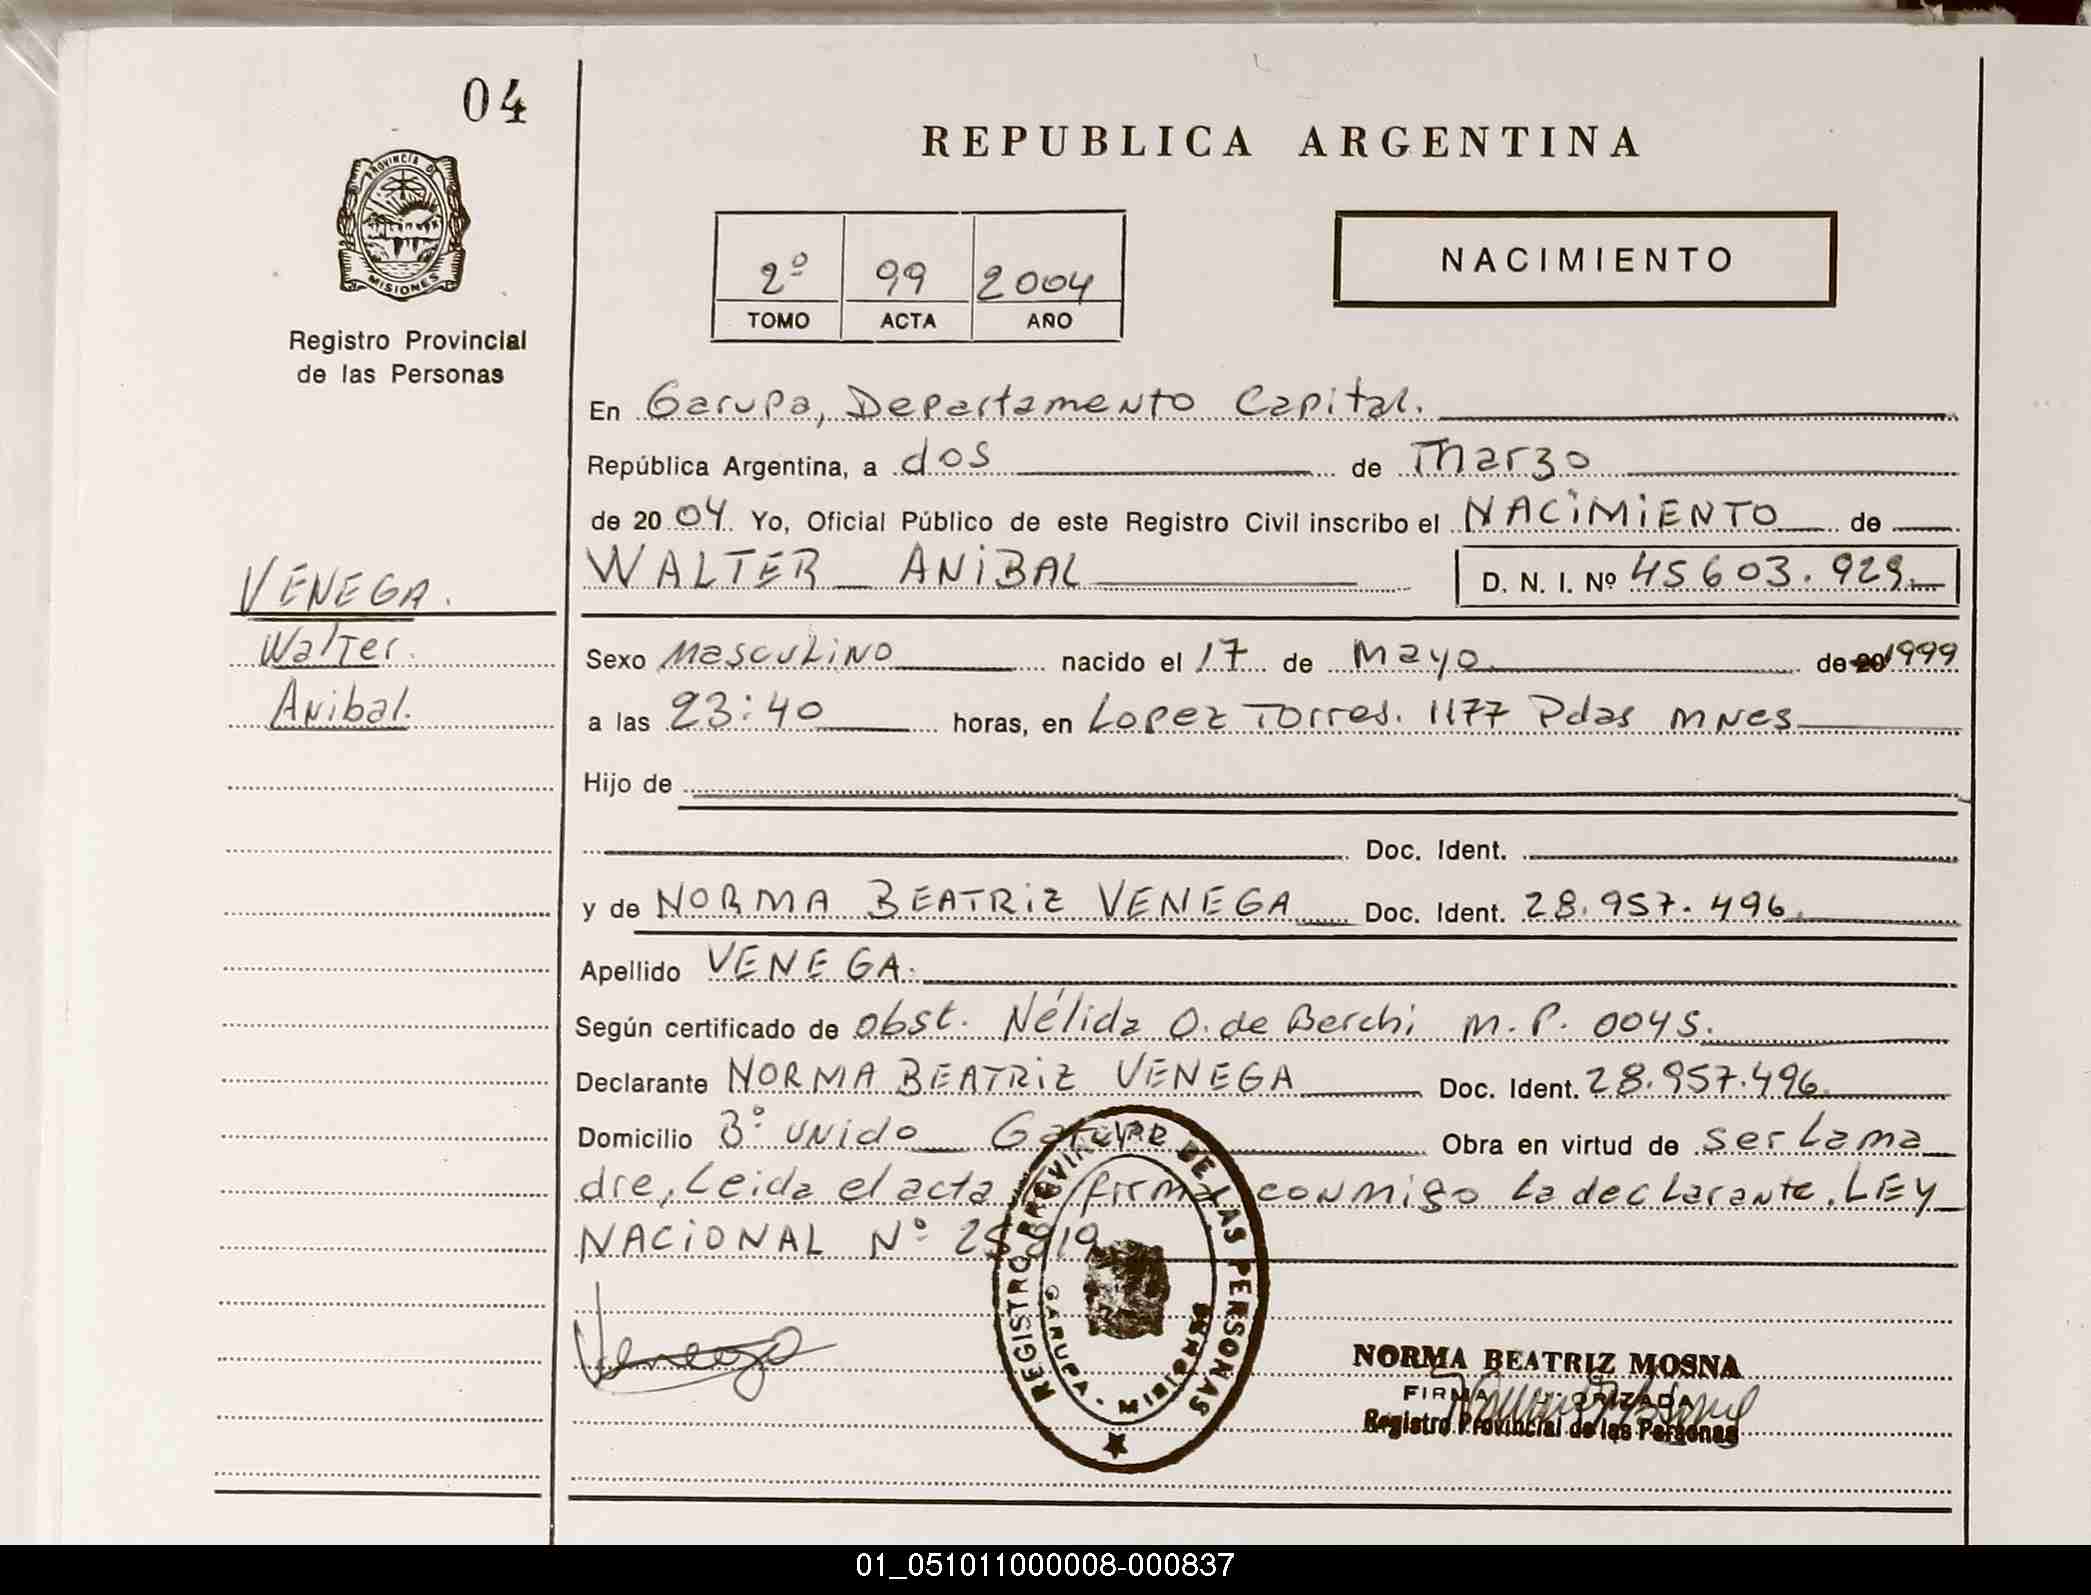 04
REPUBLICA ARGENTINA
PROVINCIA DE
MISIONES
2º 99 2004
TOMO ACTA AÑO
NACIMIENTO
Registro Provincial
de las Personas
En Garupa, Departamento Capital.
República Argentina, a dos de Marzo
de 2004 Yo, Oficial Público de este Registro Civil inscribo el NACIMIENTO de
WALTER ANIBAL D. N. I. Nº 45603.929.
VENEGA.
Walter.
Anibal.
Sexo Masculino nacido el 17 de Mayo de 20 1999
a las 23:40 horas, en Lopez Torres. 1177 Pdas MNes
Hijo de
Doc. Ident.
y de NORMA BEATRIZ VENEGA Doc. Ident. 28.957.496.
Apellido VENEGA.
Según certificado de obst. Nélida O. de Berchi M.P. 0045.
Declarante NORMA BEATRIZ VENEGA Doc. Ident. 28.957.496.
Domicilio Bº UNido Garupa Obra en virtud de ser La ma
dre, Leida el acta firma conmigo La declarante. LEY
NACIONAL Nº 25819
REGISTRO PROVINCIAL DE LAS PERSONAS
GARUPA - MISIONES
Venega
NORMA BEATRIZ MOSNA
FIRMA AUTORIZADA
Registro Provincial de las Personas
01_051011000008-000837